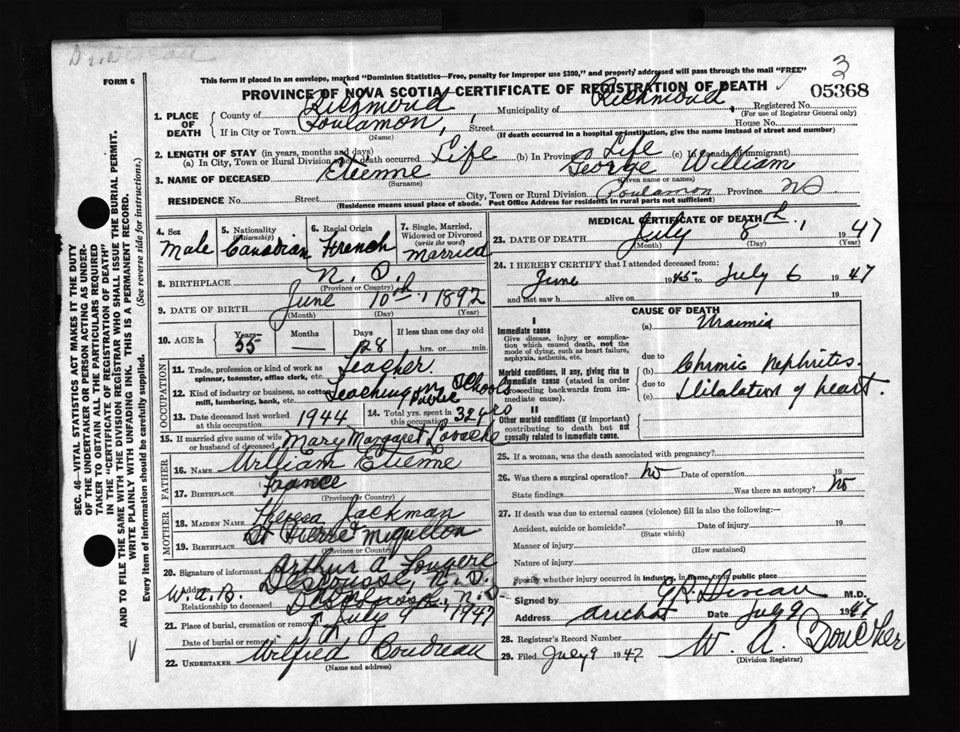 FORM 6
3
This form if placed in an envelope, marked "Dominion Statistics—Free, penalty for improper use $300," and properly addressed will pass through the mail "FREE"
PROVINCE OF NOVA SCOTIA—CERTIFICATE OF REGISTRATION OF DEATH
05368
1. PLACE OF DEATH
County of Richmond Municipality of Richmond, Registered No.
(For use of Registrar General only)
If in City or Town Poulamon, Street House No.
(Name) (If death occurred in a hospital or institution, give the name instead of street and number)
2. LENGTH OF STAY (in years, months and days)
(a) In City, Town or Rural Division where death occurred Life (b) In Province Life (c) In Canada (if immigrant)
3. NAME OF DECEASED Etienne George William
(Surname) (Given name or names)
RESIDENCE No. Street City, Town or Rural Division Poulamon Province NS
(Residence means usual place of abode. Post Office Address for residents in rural parts not sufficient)
4. Sex Male
5. Nationality (Citizenship) Canadian
6. Racial Origin French
7. Single, Married, Widowed or Divorced (write the word) Married
8. BIRTHPLACE N. S.
(Province or Country)
9. DATE OF BIRTH June 10th, 1892
(Month) (Day) (Year)
10. AGE in Years 55 Months — Days 28 If less than one day old hrs. or min.
OCCUPATION
11. Trade, profession or kind of work as spinner, teamster, office clerk, etc. Teacher.
12. Kind of industry or business, as cotton mill, lumbering, bank, etc. Teaching in Public Schools
13. Date deceased last worked at this occupation 1944
14. Total yrs. spent in this occupation 32 yrs
15. If married give name of wife or husband of deceased Mary Margaret
FATHER
16. NAME William Etienne
17. BIRTHPLACE France
(Province or Country)
MOTHER
18. MAIDEN NAME Theresa Jackman
19. BIRTHPLACE St Pierre Miquelon
(Province or Country)
20. Signature of informant Arthur A Fougere
Address Descousse, N. S.
W. A. B.
Relationship to deceased
21. Place of burial, cremation or removal N. S.
Date of burial or removal July 9 1947
22. UNDERTAKER Wilfred Boudreau
(Name and address)
MEDICAL CERTIFICATE OF DEATH
23. DATE OF DEATH July 8th, 1947
(Month) (Day) (Year)
24. I HEREBY CERTIFY that I attended deceased from:
June 1945 to July 6 1947
and last saw h alive on 19
CAUSE OF DEATH
I
Immediate cause
Give disease, injury or complication which caused death, not the mode of dying, such as heart failure, asphyxia, asthenia, etc.
(a) Uraimia
due to
Morbid conditions, if any, giving rise to immediate cause (stated in order proceeding backwards from immediate cause).
(b) Chrmic Nephrites.
due to
(c) Dilalation of heart.
II
Other morbid conditions (if important) contributing to death but not causally related to immediate cause.
25. If a woman, was the death associated with pregnancy?
26. Was there a surgical operation? No Date of operation 19
State findings Was there an autopsy? No
27. If death was due to external causes (violence) fill in also the following:—
Accident, suicide or homicide? Date of injury 19
(State which)
Manner of injury
(How sustained)
Nature of injury
Specify whether injury occurred in industry, in home, or in public place
Signed by M.D.
Address Arichat Date July 9 1947
28. Registrar's Record Number
29. Filed July 9 1947 W. A. Boucher
(Division Registrar)
SEC. 46—VITAL STATISTICS ACT MAKES IT THE DUTY
OF THE UNDERTAKER OR PERSON ACTING AS UNDER-
TAKER TO OBTAIN ALL THE PARTICULARS REQUIRED
IN THE "CERTIFICATE OF REGISTRATION OF DEATH"
AND TO FILE THE SAME WITH THE DIVISION REGISTRAR WHO SHALL ISSUE THE BURIAL PERMIT.
WRITE PLAINLY WITH UNFADING INK. THIS IS A PERMANENT RECORD.
Every item of information should be carefully supplied. (See reverse side for instructions.)